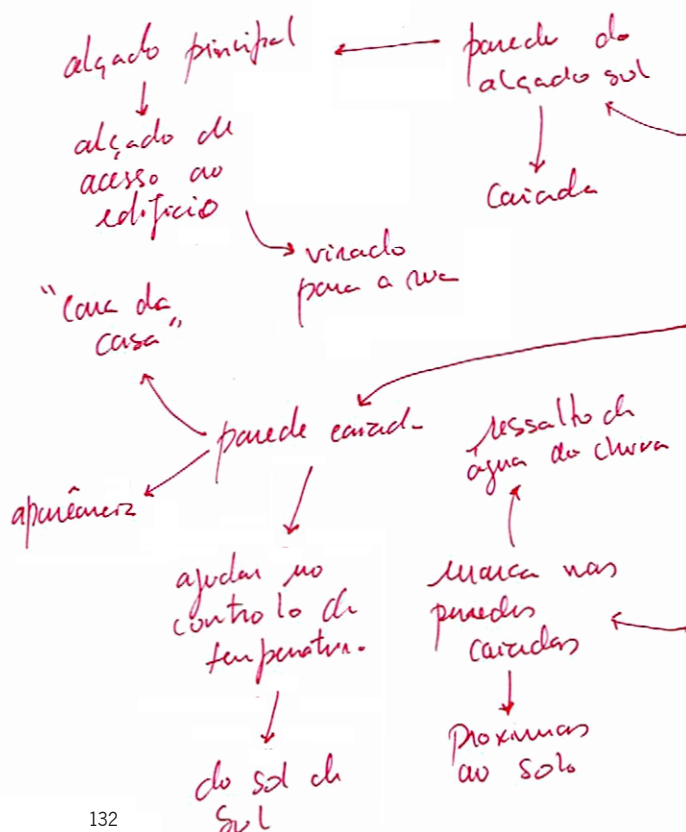 alçado principal
parede do
alçado sul
alçado de
acesso ao
edifício
caiada
virado
para a rua
"cara da
casa"
parede caiada
ressalto de
água da chuva
aparência
ajudar no
controlo de
temperatura
marca nas
paredes
caiadas
do sol de
sul
próximas
ao solo
132